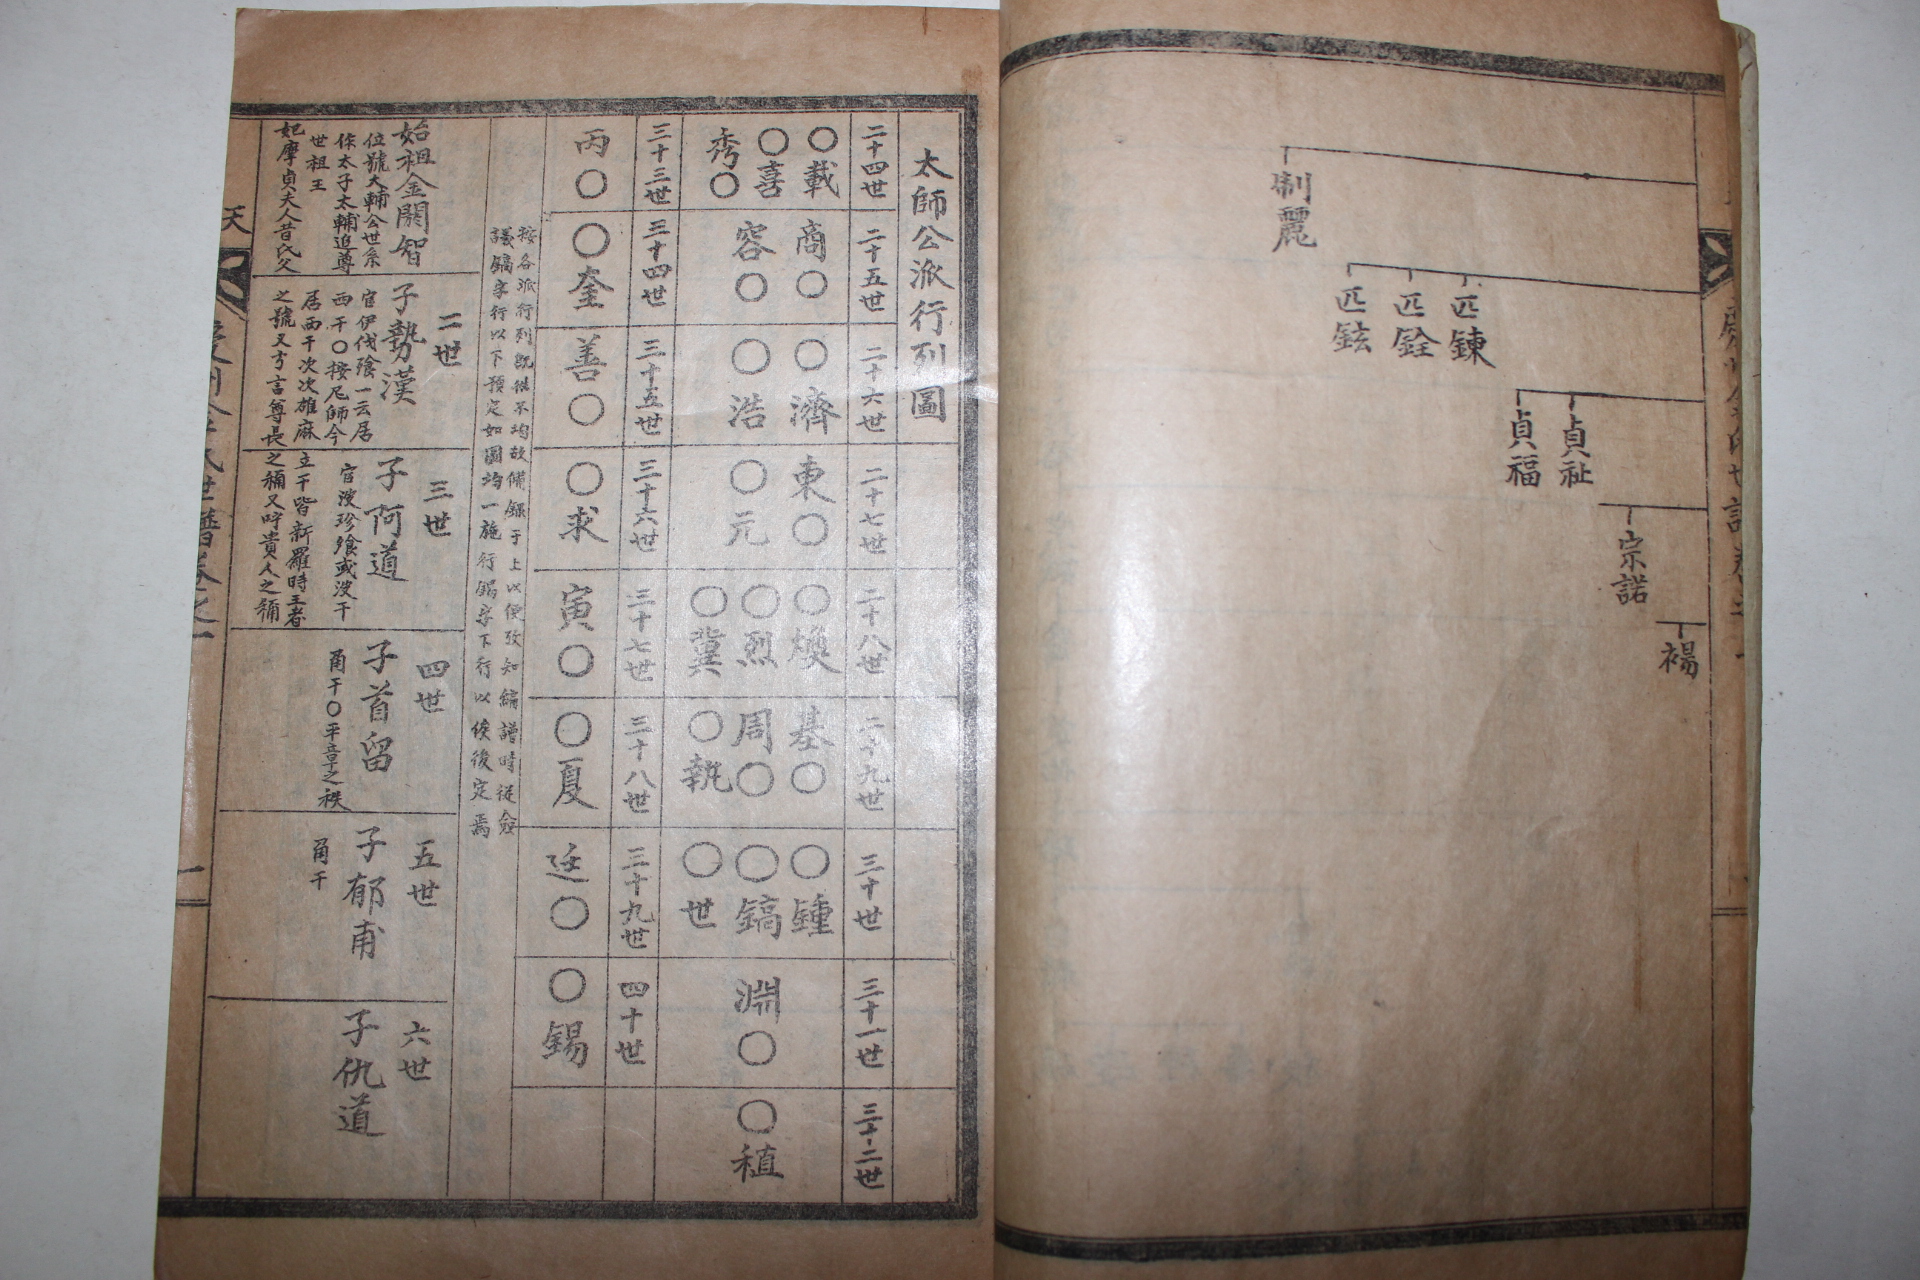 制麗
匹鍊
匹銓
匹鉉
貞祉
貞福
宗諾
禓
太師公派行列圖
二十四世
○載
○喜
秀○
二十五世
商○
容○
二十六世
○濟
○浩
二十七世
東○
○元
二十八世
○煥
○烈
○冀
二十九世
基○
周○
○執
三十世
○鍾
○鎬
○世
三十一世
淵○
三十二世
○稙
三十三世
丙○
三十四世
○奎
三十五世
善○
三十六世
○求
三十七世
寅○
三十八世
○夏
三十九世
廷○
四十世
○錫
按各派行列既往不均故備錄于上以便攷知編譜時從僉
議鎬字行以下預定如圖均一施行錫字下行以俟後定焉
始祖金閼智
位號大輔公世系
作太子太輔追尊
世祖王
妃摩貞夫人昔氏父
二世
子勢漢
官伊伐飡一云居
西干○按尼師今
居西干次次雄麻
立干皆新羅時王者
之號又方言尊長
之稱又呼貴人之稱
三世
子阿道
官波珍飡或波干
四世
子首留
角干○平章之秩
五世
子郁甫
角干
六世
子仇道
天
慶州金氏世譜卷之一
一